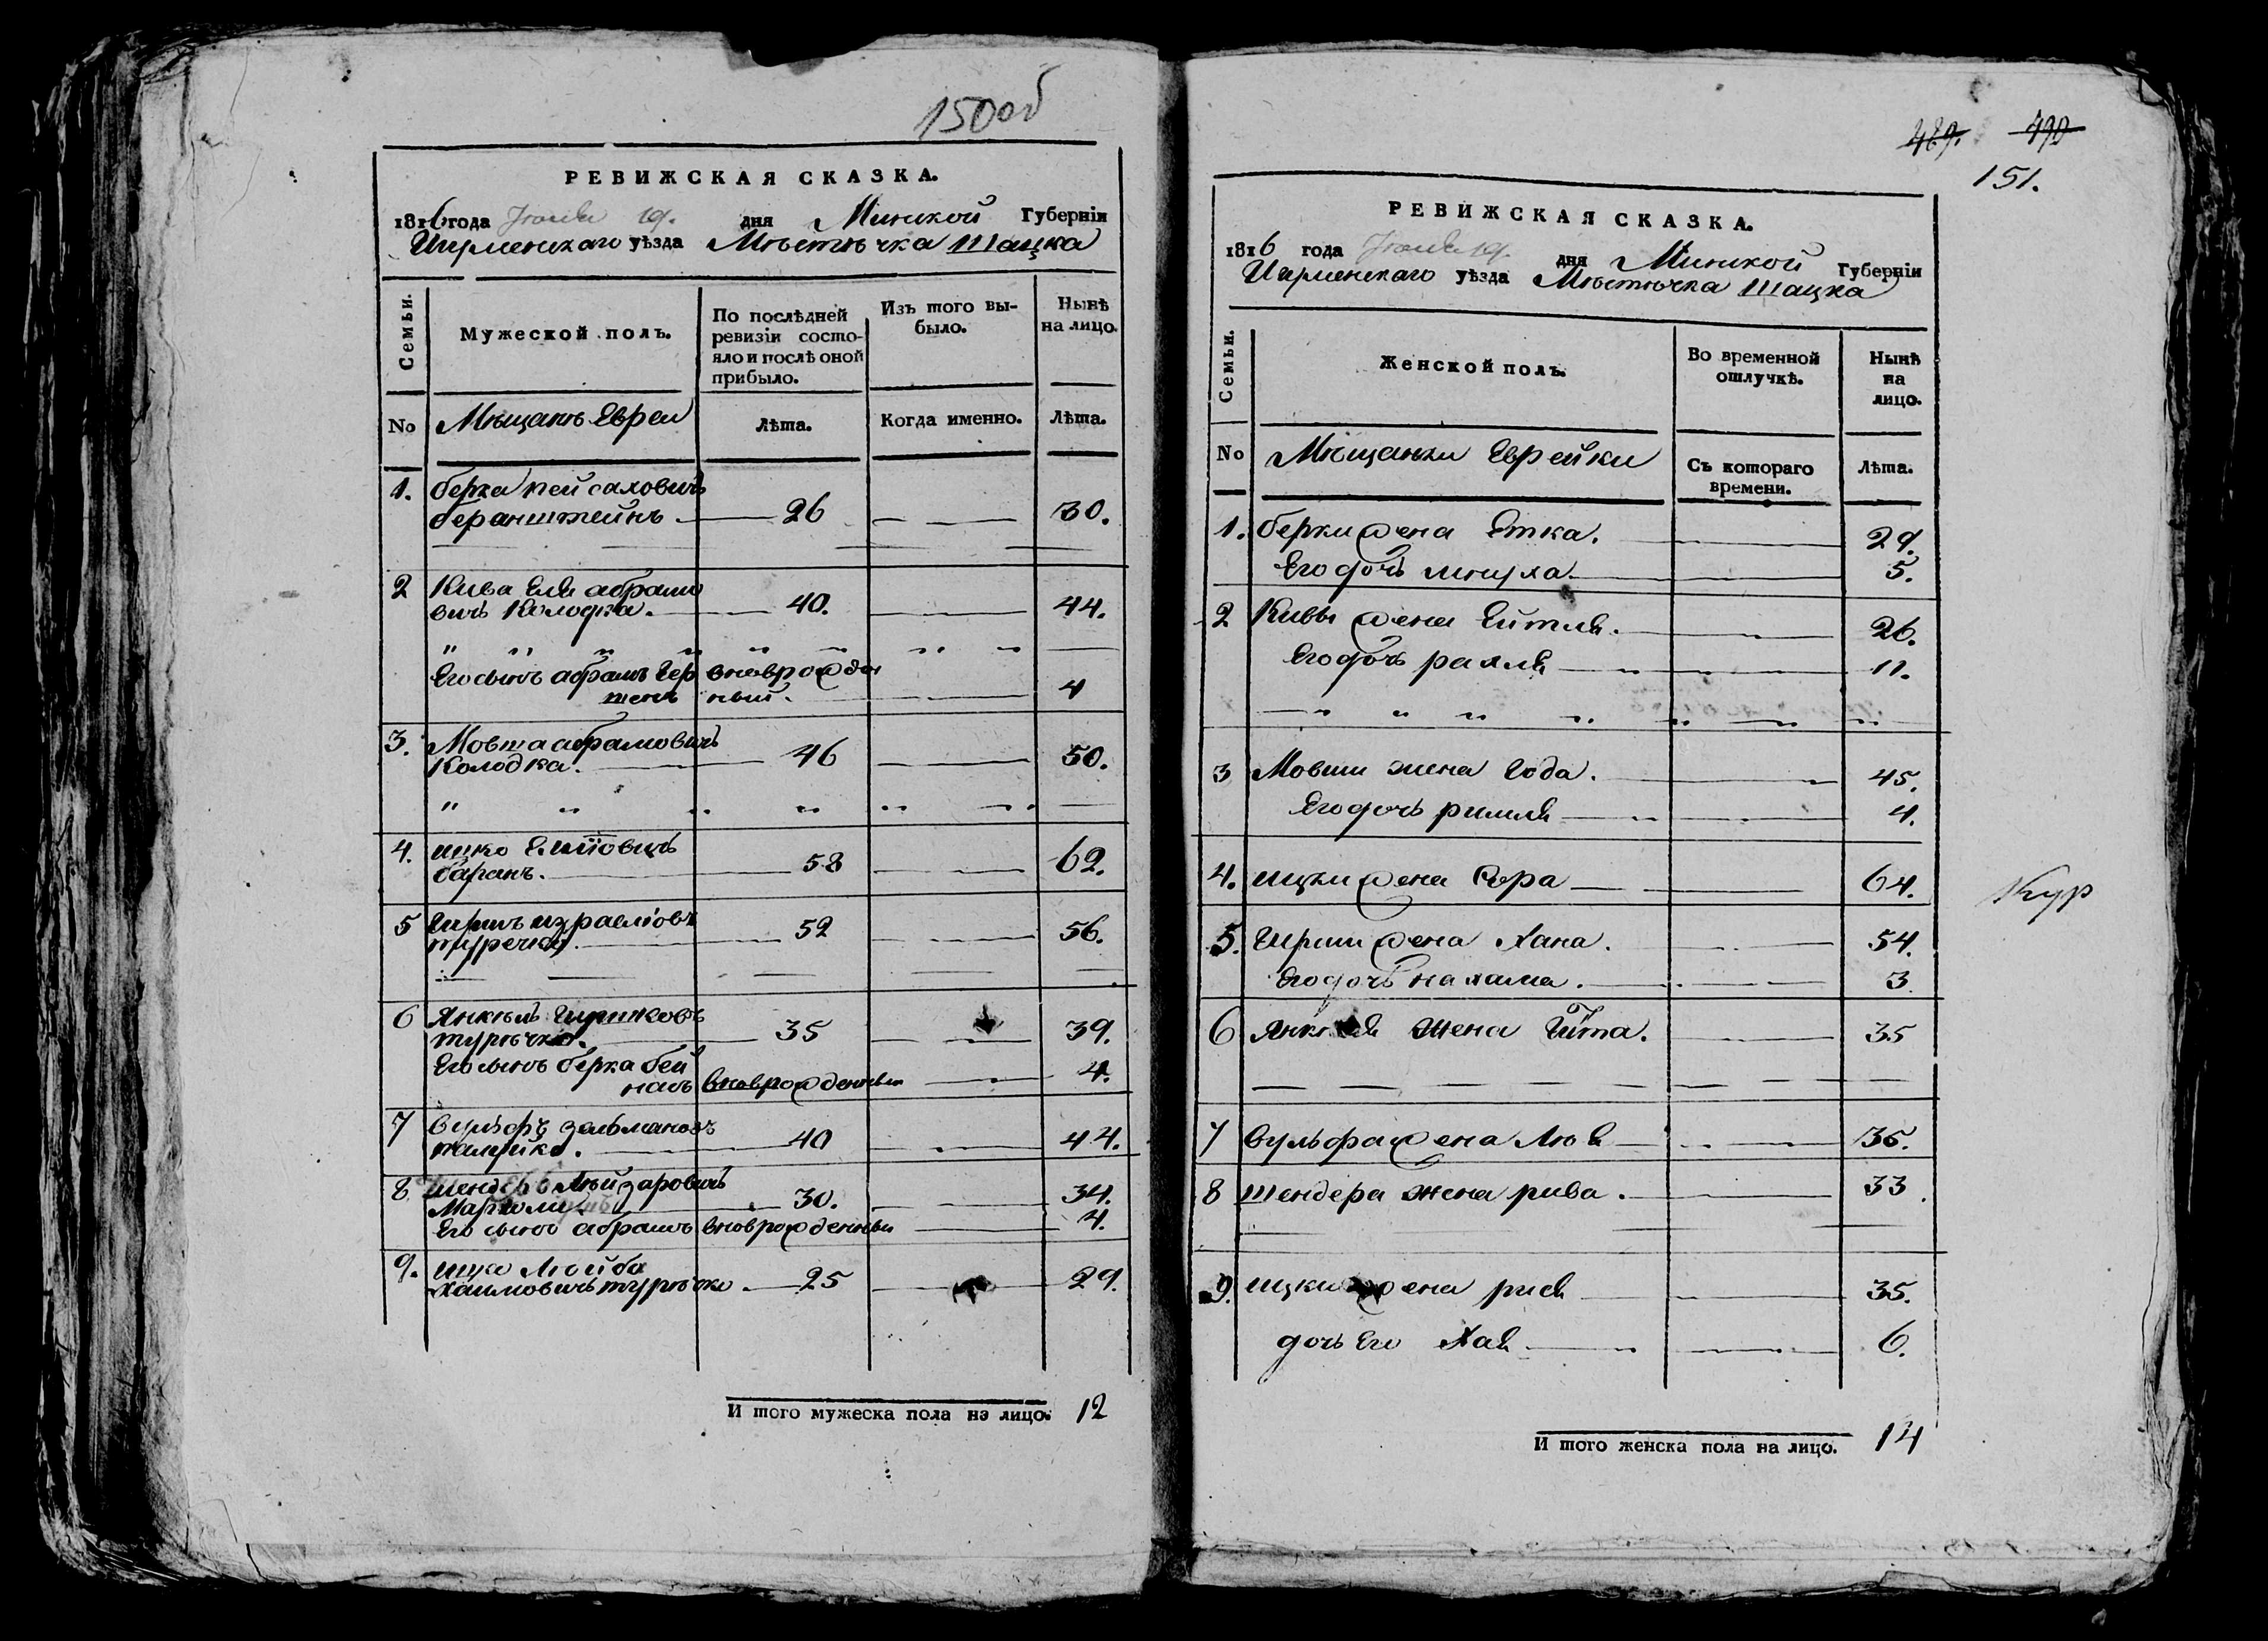 150об
РЕВИЖСКАЯ СКАЗКА.
1816 года Іюня 19. дня Минской Губерніи
Игуменскаго уѣзда Мѣстѣчка Шацка
Семьи.
Мужеской полъ.
По послѣдней ревизіи состояло и послѣ оной прибыло.
Изъ того выбыло.
Нынѣ на лицо.
No Мѣщанѣ Евреи Лѣта. Когда именно. Лѣта.
1. берка пейсаховичъ
беранштейнъ. 26 30.
2 Кива Еля абрамо
вичъ Колодка. 40. 44.
Его сынъ абрамъ Бер вноврожден
ный. 4
3. Мовша абрамовичъ
Колодка. 46 50.
4. ицко
баранъ. 58 62.
5 Гиршъ израелiовъ
туречка. 52 56.
6 Янкѣль Гиршковъ
турѣчка. 35 39.
Его сынъ берка бей
вноврожденный 4.
7 вульфъ зельмановъ
40 44.
8 Шендеръ Лѣйзаровичъ
30. 34.
Его сынъ абрамъ вноврожденный 4.
9. ицка Лѣйба
Хаимовичъ турѣчка. 25 29.
И того мужеска пола на лицо. 12
489. 490
151.
РЕВИЖСКАЯ СКАЗКА.
1816 года Іюня 19. дня Минской Губерніи
Игуменскаго уѣзда Мѣстѣчка Шацка
Семьи.
Женской полъ.
Во временной отлучкѣ.
Нынѣ на лицо.
No Мѣщанки Еврейки Съ котораго времени. Лѣта.
1. берки жена Етка. 29.
Его дочь 5.
2 Кивы жена Ейтля. 26.
Его дочь рахля 11.
3 Мовши жена Года. 45.
Его дочь 4.
4. ицки жена Сора 64.
Кур
5. Гирши жена Хана. 54.
Его дочь нахама. 3
6 Янкеля жена Гита. 35
7 вульфа жена 36.
8 шендера жена рива. 33.
9. ицки жена 35.
дочь Его Хая 6.
И того женска пола на лицо. 14